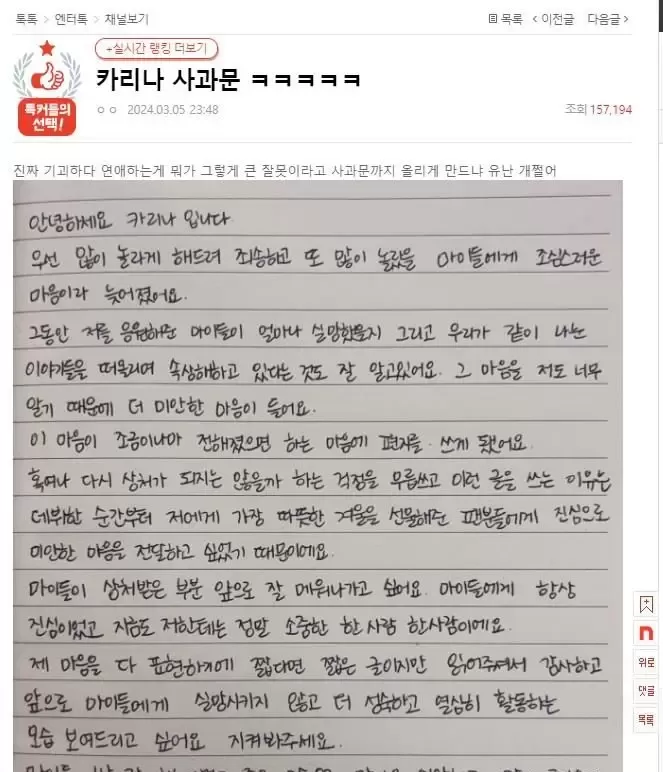 톡톡 > 엔터톡 > 채널보기
목록 < 이전글 다음글 >
+실시간 랭킹 더보기
톡커들의 선택!
카리나 사과문 ㅋㅋㅋㅋㅋ
ㅇㅇ 2024.03.05 23:48
조회 157,194
진짜 기괴하다 연애하는게 뭐가 그렇게 큰 잘못이라고 사과문까지 올리게 만드냐 유난 개쩔어
안녕하세요 카리나 입니다
우선 많이 놀라게 해드려 죄송하고 또 많이 놀랐을 마이들에게 조심스러운
마음이라 늦어졌어요.
그동안 저를 응원해준 마이들이 얼마나 실망했을지 그리고 우리가 같이 나눈
이야기들을 떠올리며 속상해하고 있다는 것도 잘 알고있어요. 그 마음을 저도 너무
알기 때문에 더 미안한 마음이 들어요.
이 마음이 조금이나마 전해졌으면 하는 마음에 편지를 쓰게 됐어요.
혹여나 다시 상처가 되지는 않을까 하는 걱정을 무릅쓰고 이런 글을 쓰는 이유는
데뷔한 순간부터 저에게 가장 따뜻한 겨울을 선물해준 팬분들에게 진심으로
미안한 마음을 전달하고 싶었기 때문이에요.
마이들이 상처받은 부분 앞으로 잘 메워나가고 싶어요. 마이들에게 항상
진심이었고 지금도 저한테는 정말 소중한 한사람 한사람이에요.
제 마음을 다 표현하기에 짧다면 짧은 글이지만 읽어주셔서 감사하고
앞으로 마이들에게 실망시키지 않고 더 성숙하고 열심히 활동하는
모습 보여드리고 싶어요 지켜봐주세요.
n
위로
댓글
목록